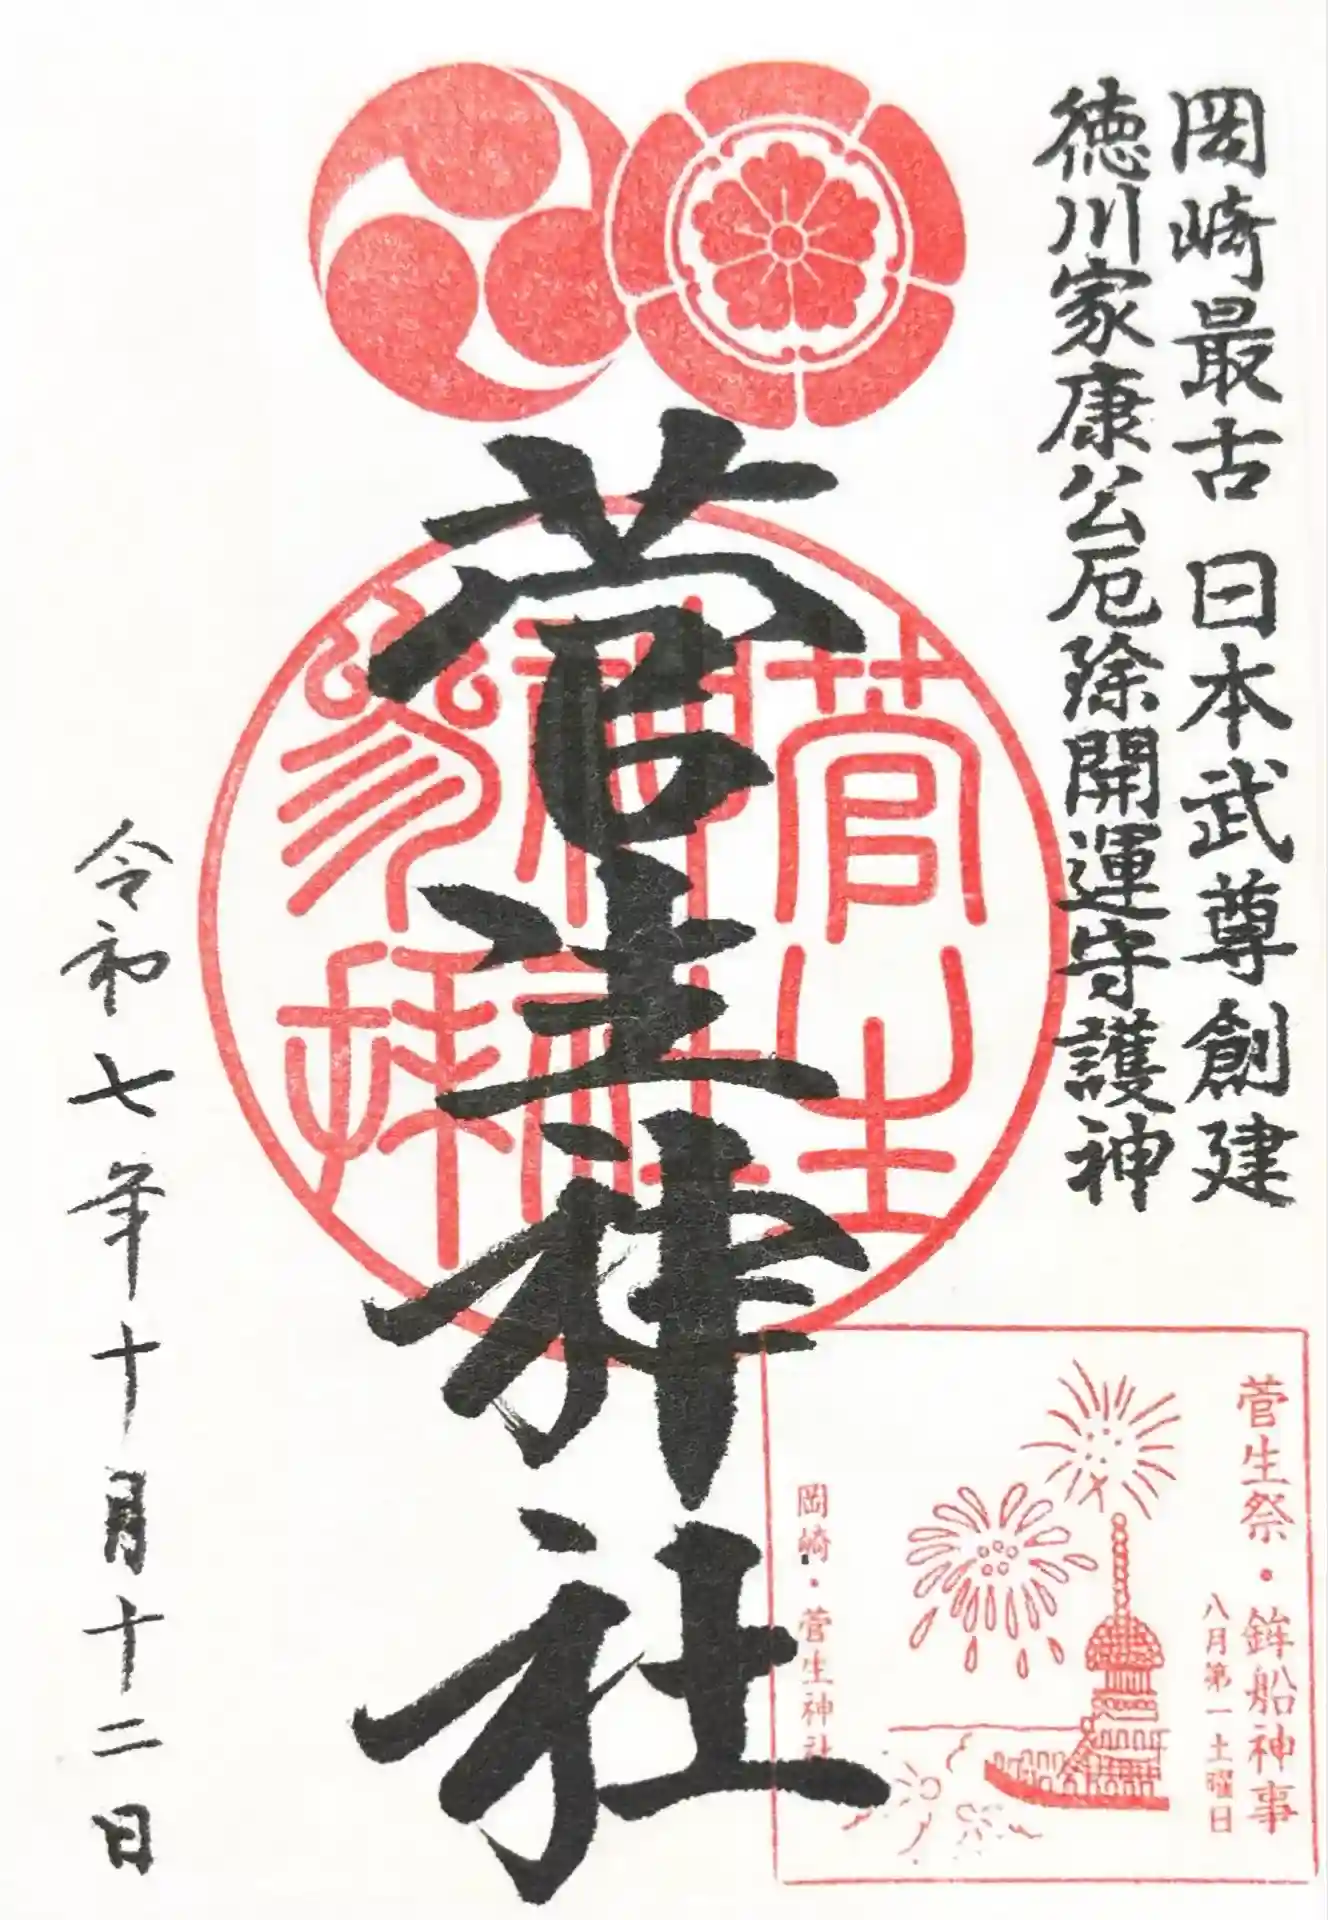 岡崎最古 日本武尊創建
徳川家康公厄除開運守護神
菅生神社
菅生
神社
参拝
令和七年十月十二日
菅生祭・鉾船神事
八月第一土曜日
岡崎・菅生神社